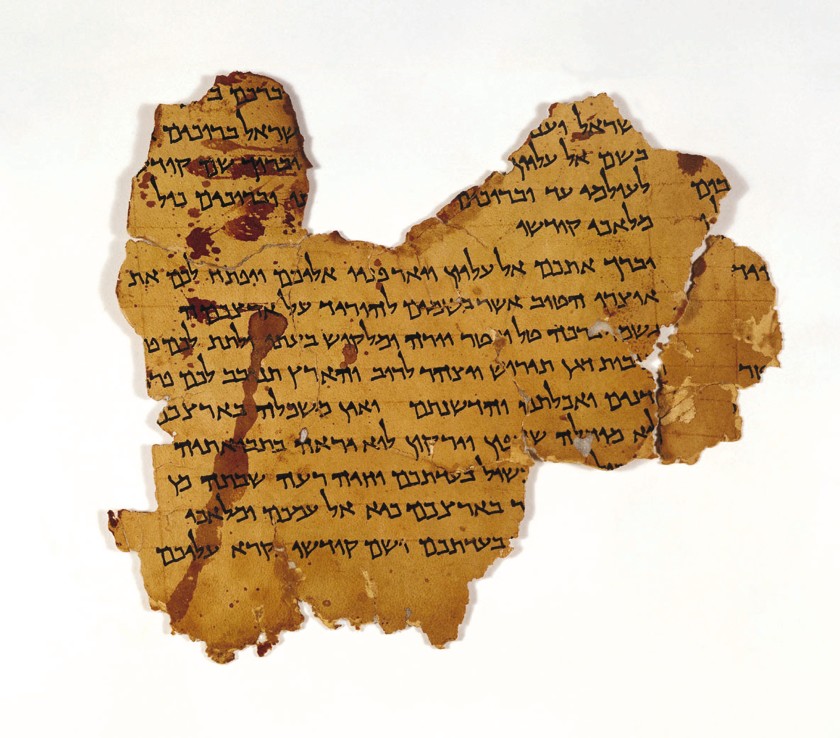 וברכם
ישראל וענ ישראל ברוכים
בשם אל עליון וברוך שם קודשו
לעולמי עד וברוכים וברוכים כול
מלאכי קודשו
יברך אתכם אל עליון ויאר פניו אליכם ויפתח לכם את
אוצרו הטוב אשר בשמים להוריד על ארצכמה
גשמי ברכה טל ומטר יורה ומלקוש בעתו ולתת לכם
תנובות דגן תירוש ויצהר לרוב והארץ תנובב לכם
עדנים ואכלתם והדשנתם ואין משכלה בארצכם
ולוא מוחלה שדפון וירקון לוא יראה בתבואתיה
ומכשול בעדתכם וחיה רעה שבתה מן
בארצכם כיא אל עמכם ומלאכי
בעדתכם ושם קודשו נקרא עליכם